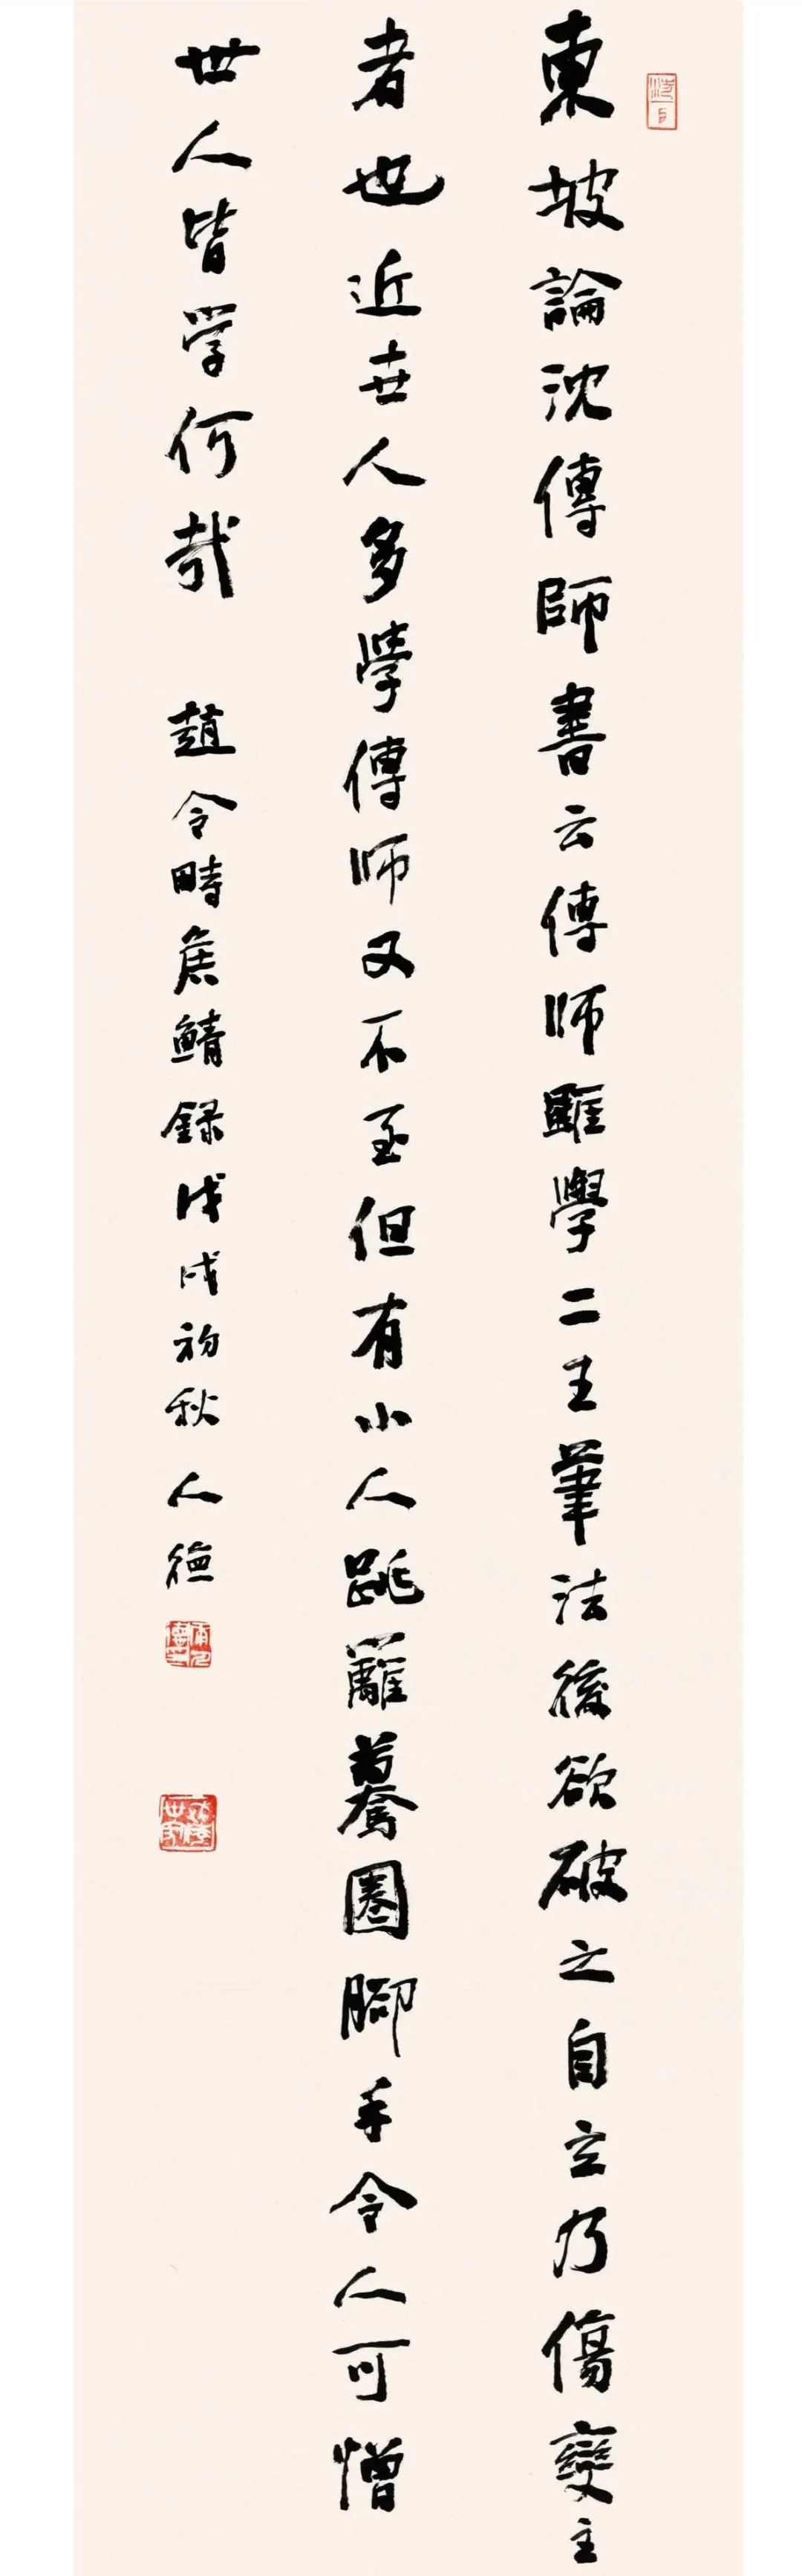 東坡論沈傳師書云傳師雖學二王筆法後欲破之自立乃傷變主
者也近世人多學傳师又不至但有小人跳籬驀圈腳手令人可憎
世人皆学何哉 趙令畤矦鯖録戊戌初秋 人德